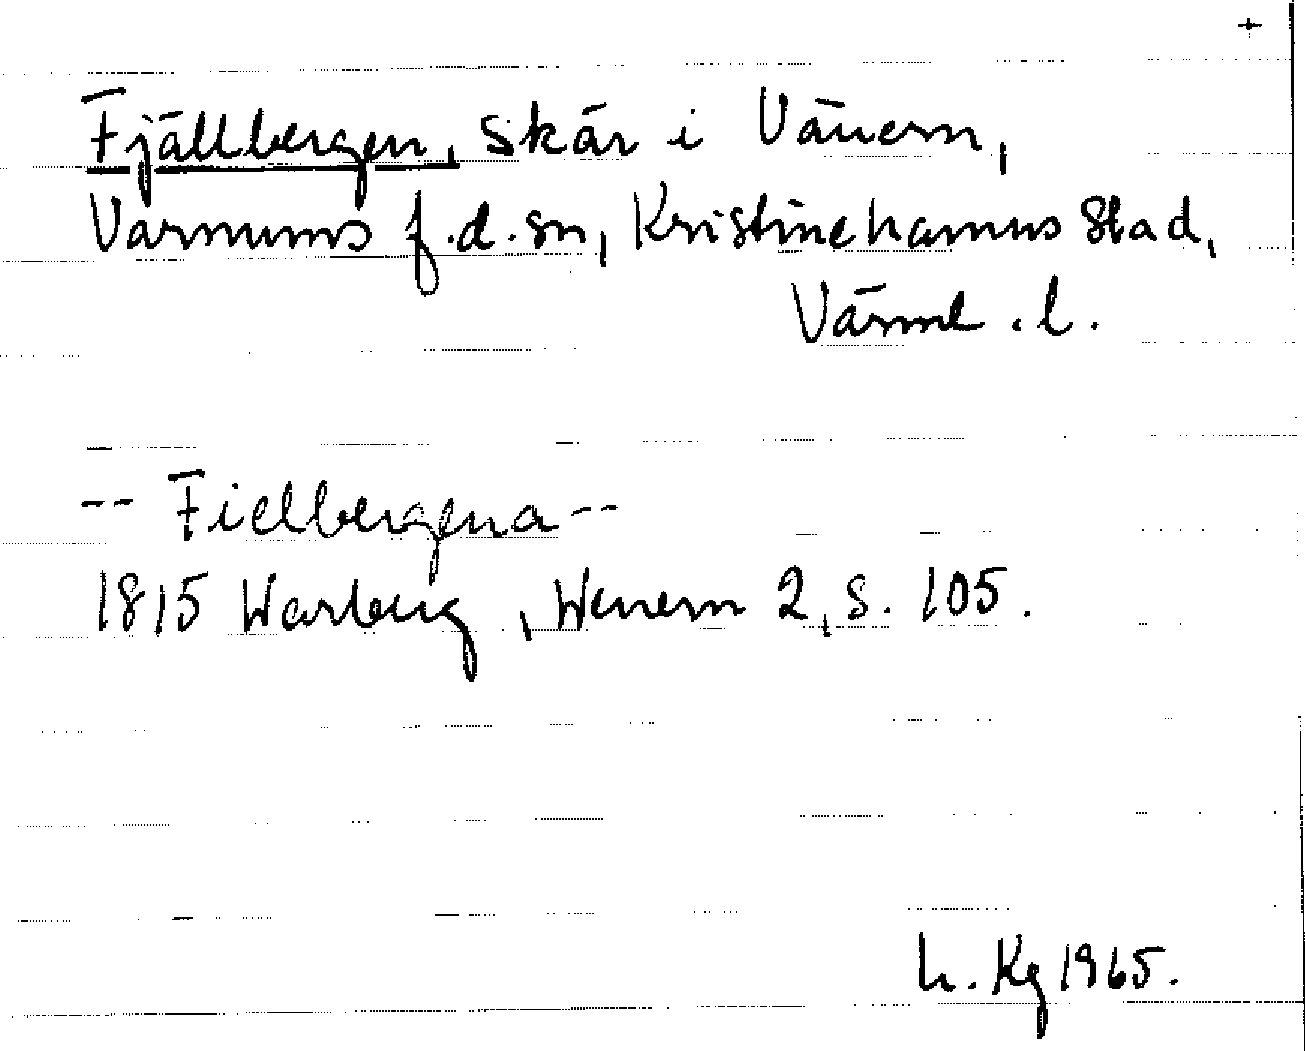 +
Fjällbergen, skär i Vänern,
Varnums f.d. sn, Kristinehamns stad,
Värml. l.
-- Fielbergena --
1815 Warberg, Wenern 2, s. 105.
h. Kg 1965.